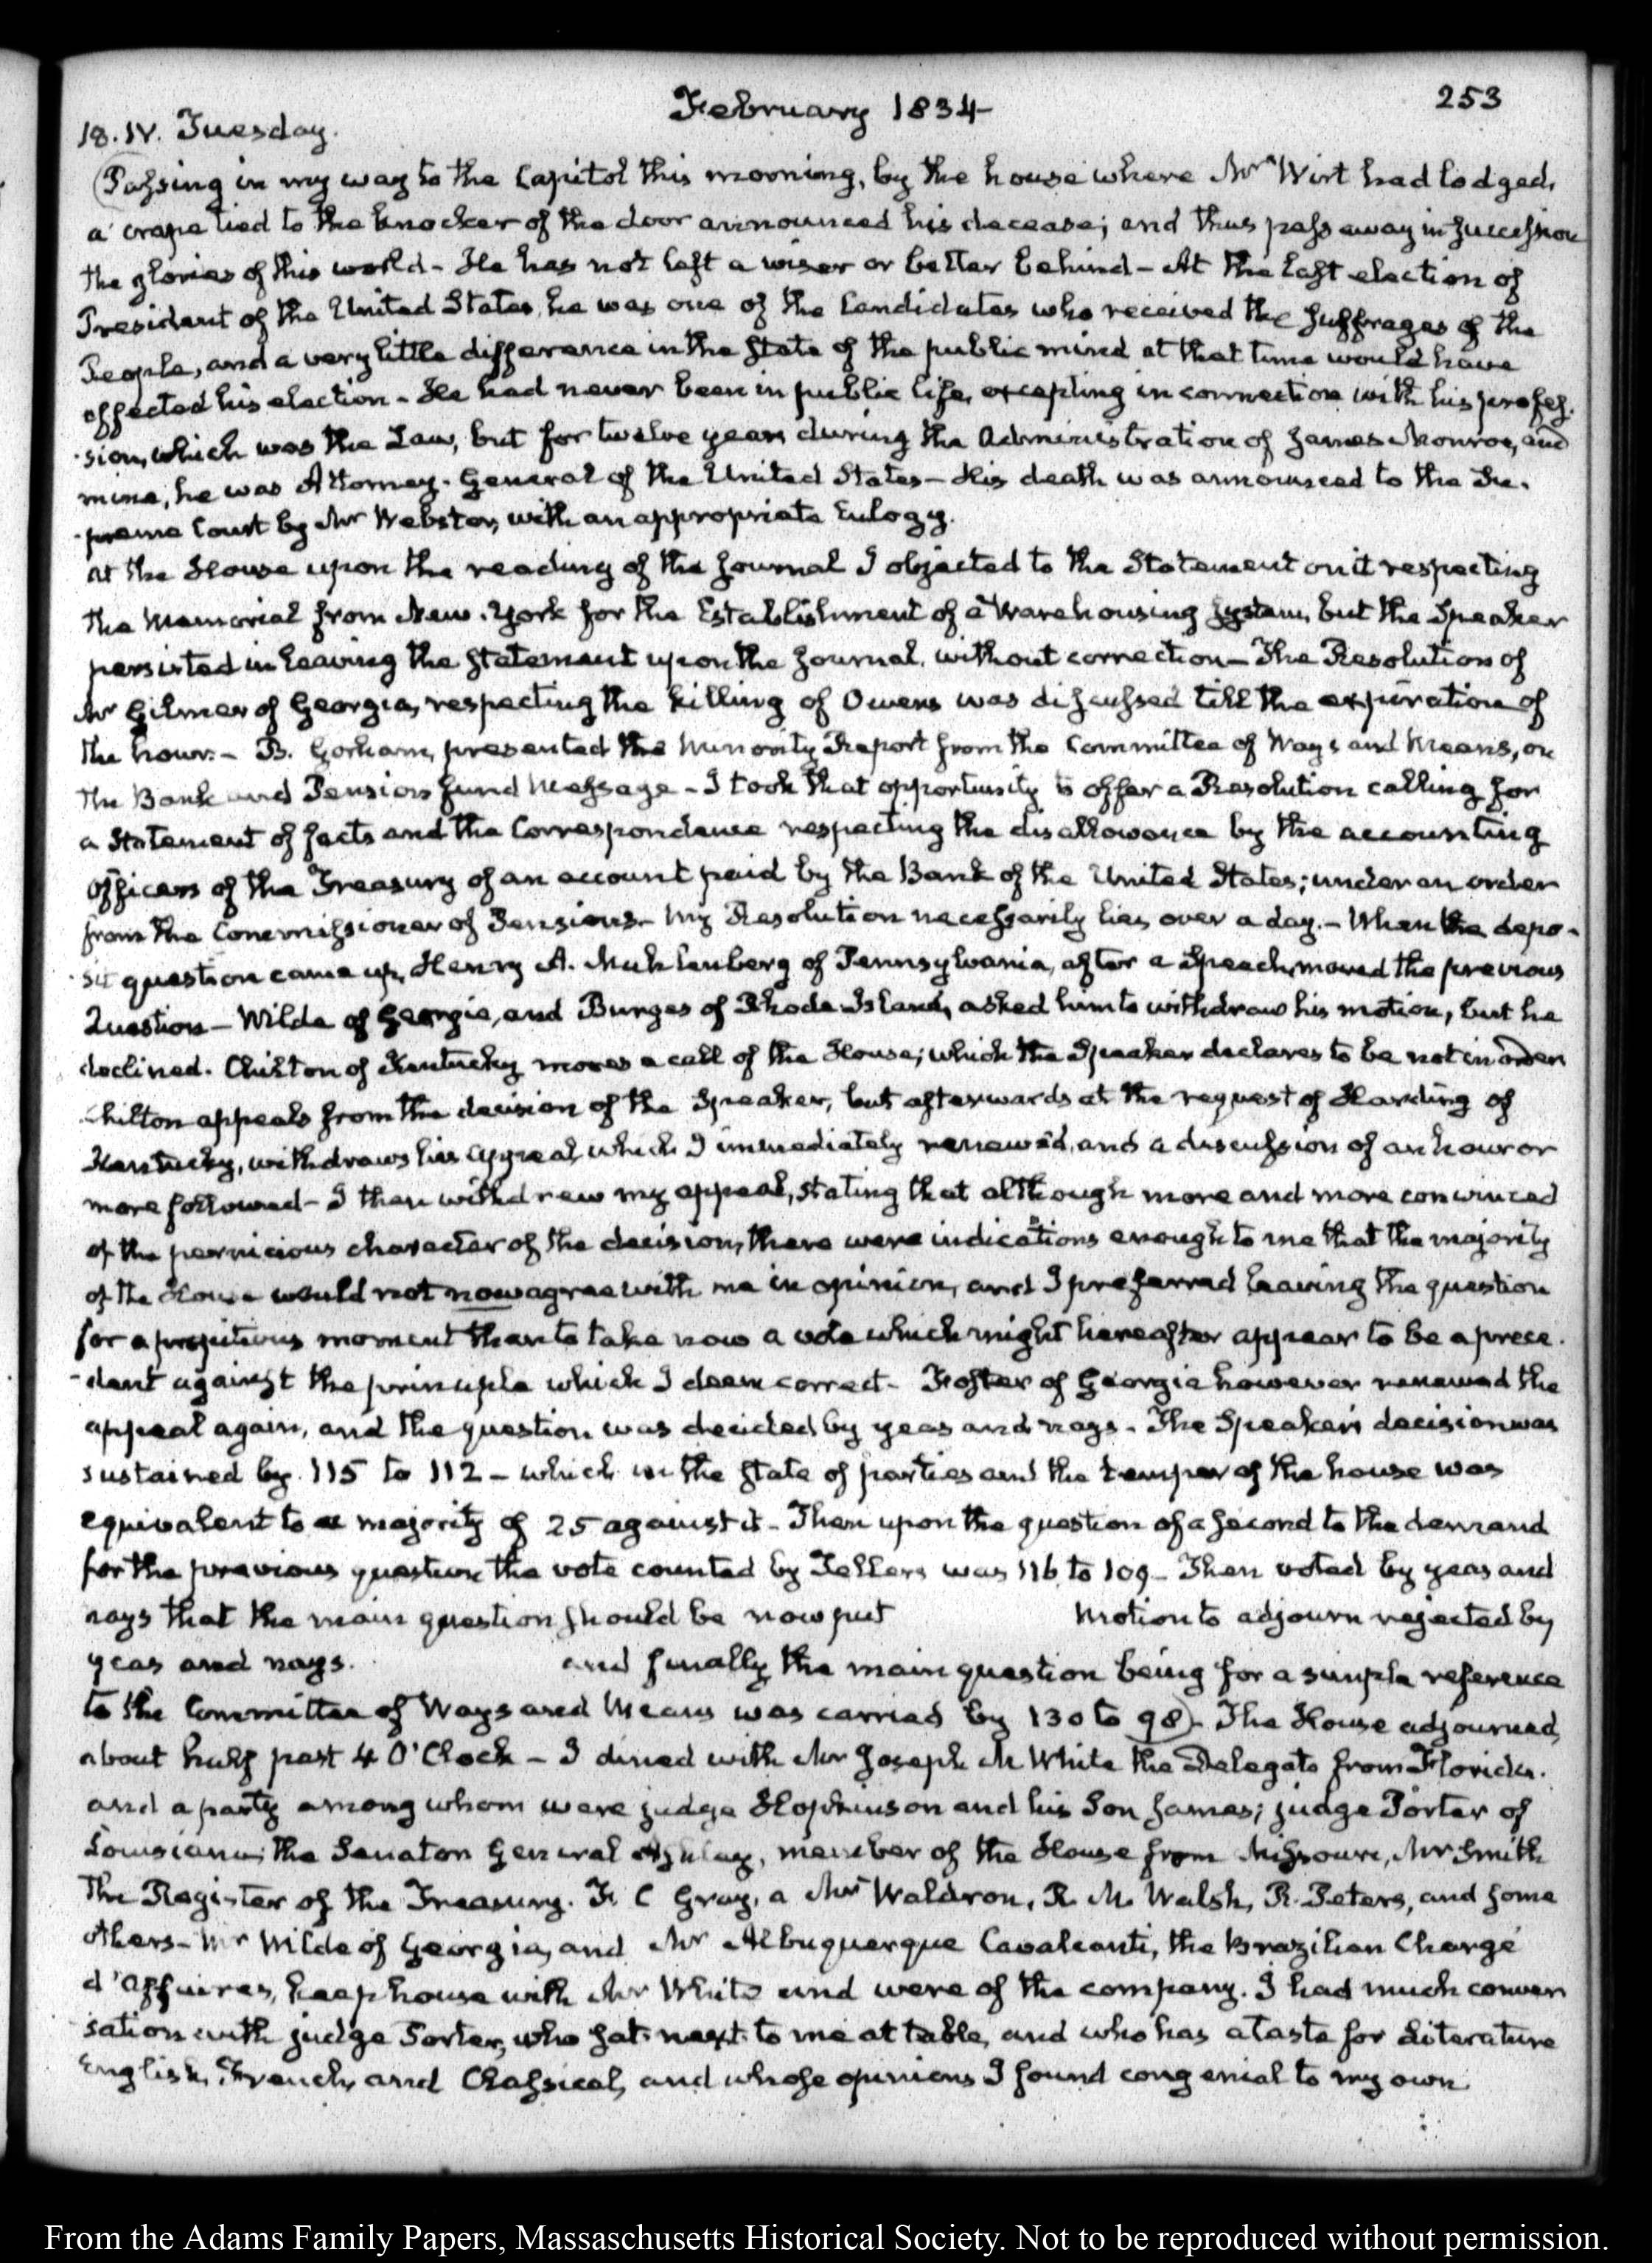 February 1834
253
18. IV. Tuesday.
Passing in my way to the Capitol this morning, by the house where Mr Wirt had lodged,
a crape tied to the knocker of the door announced his decease; and thus pass away in succession
the glories of this world - He has not left a wiser or better behind - At the last election of
President of the United States, he was one of the Candidates who received the suffrages of the
People, and a very little difference in the State of the public mind at that time would have
effected his election - He had never been in public life, excepting in connection with his profes-
-sion, which was the Law, but for twelve years during the Administration of James Monroe, and
mine, he was Attorney-General of the United States - His death was announced to the Su-
-preme Court by Mr Webster, with an appropriate Eulogy.
At the House upon the reading of the Journal I objected to the Statement on it respecting
the Memorial from New-York for the Establishment of a Warehousing System, but the Speaker
persisted in leaving the statement upon the Journal, without correction - The Resolution of
Mr Gilmer of Georgia, respecting the killing of Owens was discussed till the expiration of
the hour. - B. Gorham, presented the Minority Report from the Committee of Ways and Means, on
the Bank and Pension fund Message - I took that opportunity to offer a Resolution calling for
a Statement of facts and the Correspondence respecting the disallowance by the accounting
Officers of the Treasury of an account paid by the Bank of the United States; under an order
from the Commissioner of Pensions - My Resolution necessarily lies over a day. - When the depo-
-sit question came up, Henry A. Muhlenberg of Pennsylvania, after a Speech, moved the previous
Question - Wilde of Georgia, and Burges of Rhode-Island, asked him to withdraw his motion, but he
declined. Chilton of Kentucky moves a call of the House; which the Speaker declares to be not in order
Chilton appeals from the decision of the Speaker, but afterwards at the request of Harding of
Kentucky, withdraws his appeal, which I immediately renewed, and a discussion of an hour or
more followed - I then withdrew my appeal, stating that although more and more convinced
of the pernicious character of the decision, there were indications enough to me that the majority
of the House would not now agree with me in opinion, and I preferred leaving the question
for a propitious moment than to take now a vote which might hereafter appear to be a prece-
-dent against the principle which I deem correct - Foster of Georgia however renewed the
appeal again, and the question was decided by yeas and nays - The Speaker's decision was
sustained by 115 to 112 - which in the state of parties and the temper of the house was
equivalent to a majority of 25 against it - Then upon the question of a second to the demand
for the previous question the vote counted by Tellers was 116 to 109 - Then voted by yeas and
nays that the main question should be now put Motion to adjourn rejected by
yeas and nays. and finally the main question being for a simple reference
to the Committee of Ways and Means was carried by 130 to 98) - The House adjourned,
about half past 4 O'Clock - I dined with Mr Joseph M White the Delegate from Florida.
and a party among whom were judge Hopkinson and his Son James; judge Porter of
Louisiana; the Senator General Ashley, member of the House from Missouri, Mr Smith
the Register of the Treasury. F. C Gray, a Mr Waldron, R. M. Walsh, R. Peters, and some
others - Mr Wilde of Georgia, and Mr Albuquerque Cavalcanti, the Brazilian Chargé
d'Affaires, keep house with Mr White and were of the company. I had much conver
sation with judge Porter, who sat next to me at table, and who has a taste for Literature
English, French, and Classical, and whose opinions I found congenial to my own.
From the Adams Family Papers, Massaschusetts Historical Society. Not to be reproduced without permission.